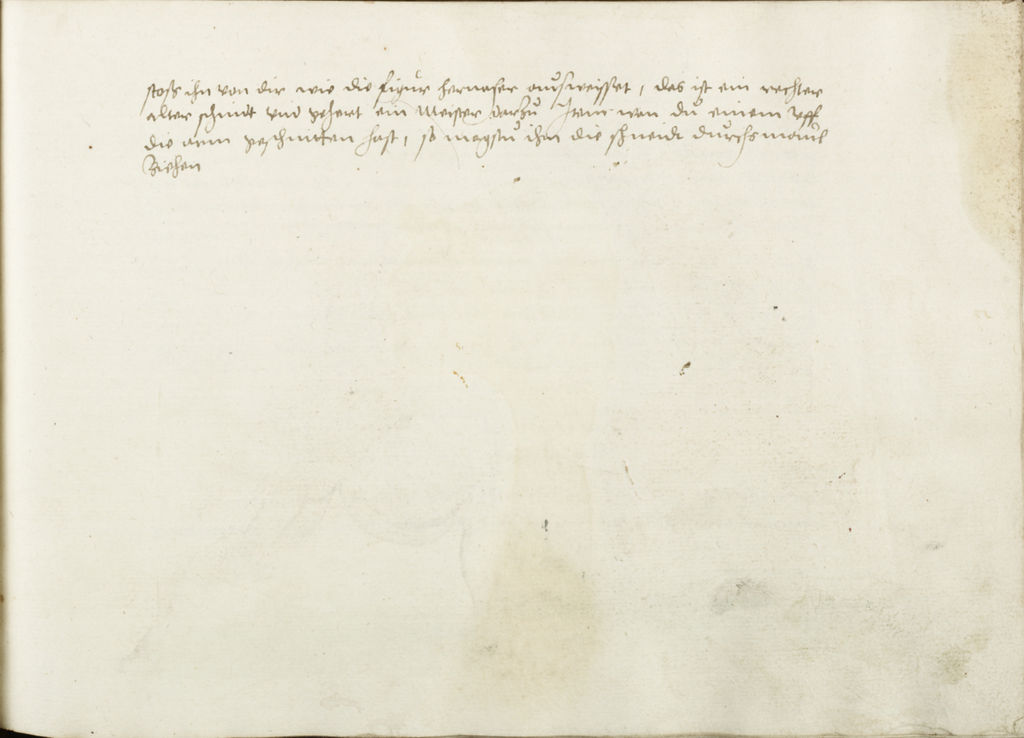 stoss ihn von dir wie die figur hernaher ausweisset, das ist ein rechter
alter schnidt vnd gehert ein Meister darzu Item wan du einem
die arm geschnitten hast, so magstu ihm die schneidt durchs maul
Ziehen